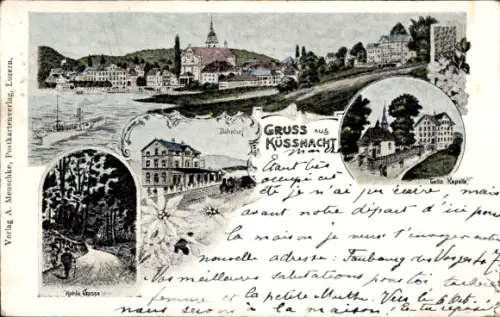 Verlag A. Meuschke, Postkartenverlag, Luzern.
GRUSS AUS
KÜSSNACHT
Bahnhof
Tells Kapelle
Hohle Gasse
Étant très
occupé
été je n'ai pu écrire mais
avant notre départ d'ici pour
la maison je veux t'envoyer notre
nouvelle adresse: Faubourg des Vosges
Mes meilleures salutations pour toi ta chère
femme et la petite Marthe. Vers le 6 Août
nous serons à la maison;